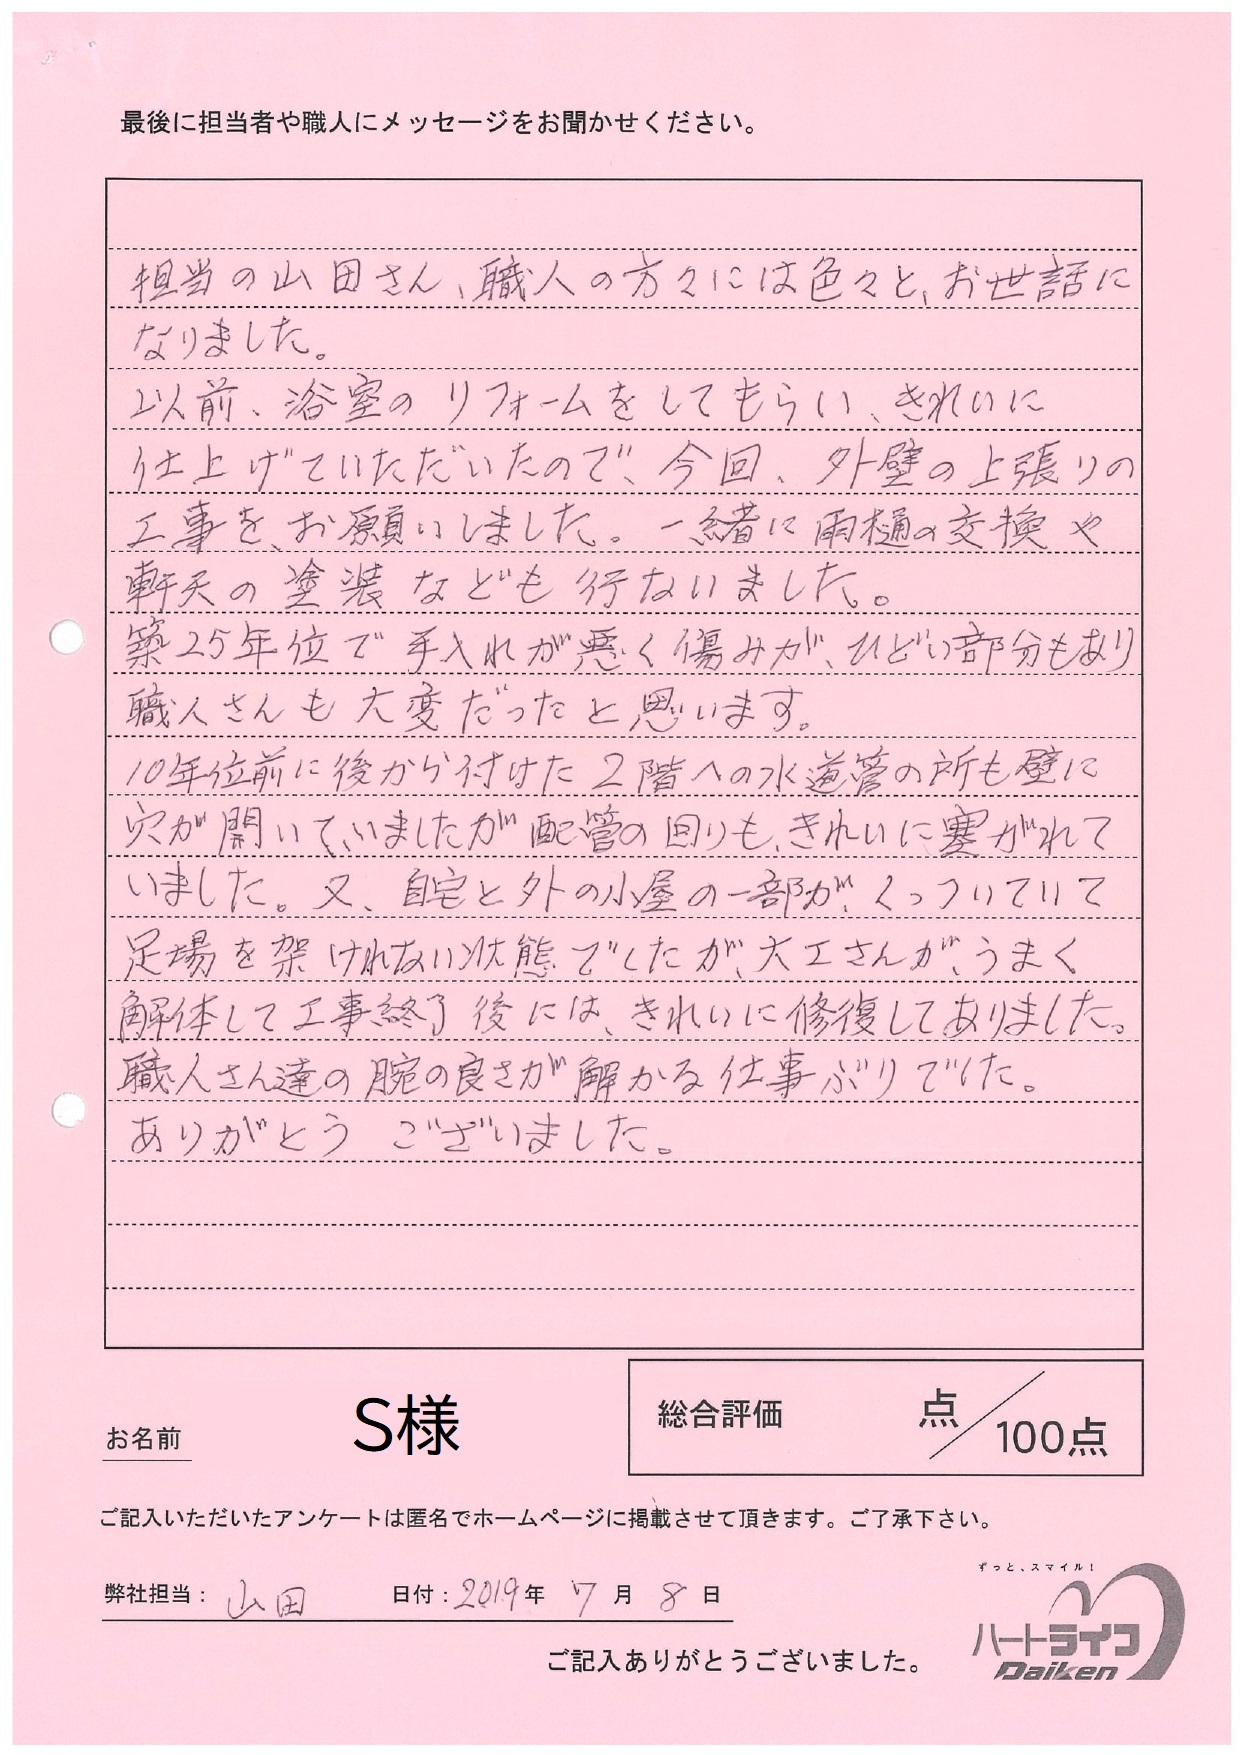 最後に担当者や職人にメッセージをお聞かせください。
担当の山田さん、職人の方々には色々と、お世話に
なりました。
以前、浴室のリフォームをしてもらい、きれいに
仕上げていただいたので、今回、外壁の上張りの
工事を、お願いしました。一緒に雨樋の交換や
軒天の塗装なども行ないました。
築25年位で手入れが悪く傷みが、ひどい部分もあり
職人さんも大変だったと思います。
10年位前に後から付けた2階への水道管の所も壁に
穴が開いていましたが配管の回りも、きれいに塞がれて
いました。又、自宅と外の小屋の一部が、くっついていて
足場を架けれない状態でしたが、大工さんが、うまく
解体して工事終了後には、きれいに修復してありました。
職人さん達の腕の良さが解かる仕事ぶりでした。
ありがとうございました。
お名前 S様
総合評価 点/100点
ご記入いただいたアンケートは匿名でホームページに掲載させて頂きます。ご了承下さい。
弊社担当：山田 日付：2019年 7月 8日
ずっと、スマイル！
ハートライフ
Daiken
ご記入ありがとうございました。